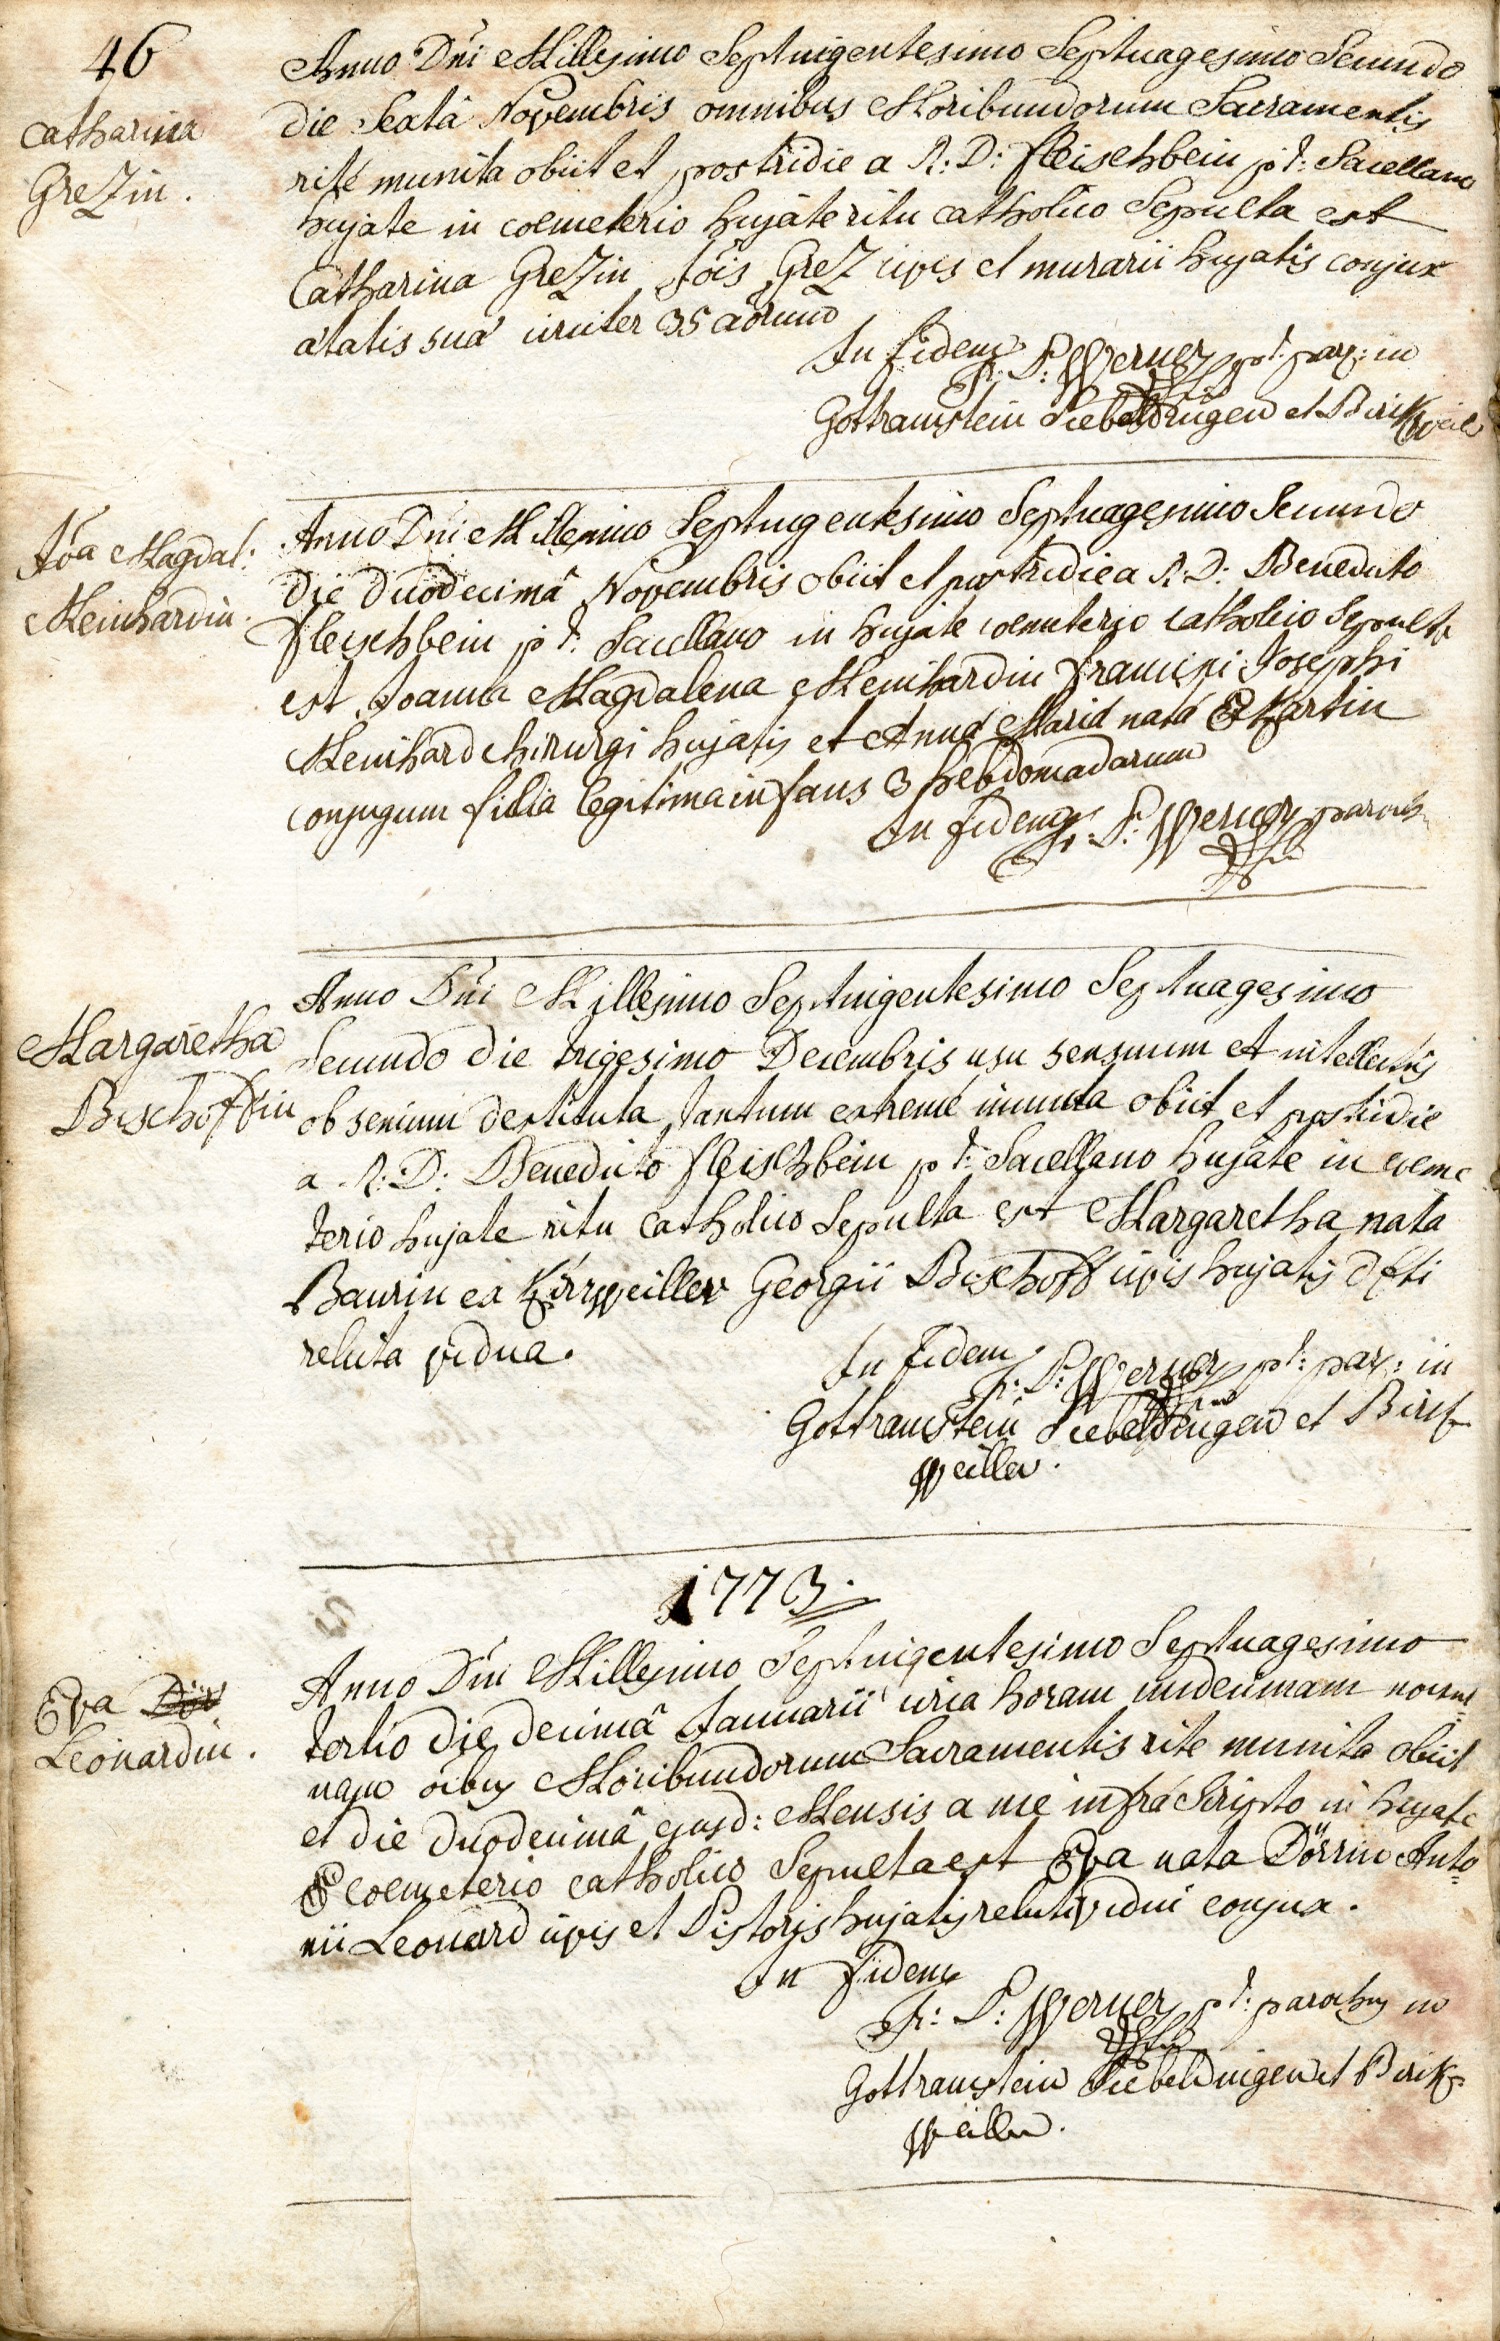 46
Catharina
Grezin.
Anno Dni Millesimo Septuigentesimo Septuagesimo Secundo
die Sexta Novembris omnibus Moribundorum Sacramentis
rite munita obiit et postridie a R: D: fleischbein pt: Sacellano
hujate in coemeterio hujate ritu catholico Sepulta est
Catharina Grezin Jois Grez civis et murarii hujatis conjux
ætatis suæ circiter 35 aorum
In fidem
Fr: P: Werner pt: par: in
Gottramstein Siebeldingen et Birkweiler
Joa Magdal:
Meinhardin.
Anno Dni Millesimo Septuigentesimo Septuagesimo Secundo
die duodecimâ Novembris obiit et postridie a R: D: Benedicto
fleischbein pt: Sacellano in hujate coemeterio catholico Sepulta
est Joanna Magdalena Meinhardin francisci Josephi
Meinhard chirurgi hujatis et Annæ Mariæ natæ Ekartin
conjugum filia legitima infans 3 hebdomadarum
In fidem Fr. P: Werner paroch
Margaretha
Bischoffin
Anno Dni Millesimo Septuigentesimo Septuagesimo
Secundo die trigesimo Decembris usu sensuum et intellectus
ob senium destituta, tantum extreme inuncta obiit et postridie
a R: D: Benedicto fleischbein pt: Sacellano hujate in coeme
terio hujate ritu Catholico Sepulta est Margaretha nata
Baurin ex Kirrweiller Georgii Bischoff civis hujatis dfti
relicta vidua.
In fidem
Fr: P: Werner pt: par: in
Gottramstein Siebeldingen et Birk
weiller.
1773.
Eva Dör
Leonardin.
Anno Dni Millesimo Septuigentesimo Septuagesimo
tertio die decimâ Januarii circa horam undecimam noctur=
nam oibus Moribundorum Sacramentis rite munita obiit
et die duodecimâ ejusd: Mensis a me infra Scripto in hujate
coemeterio catholico Sepulta est Eva nata Dörrin Anto=
nii Leonard civis et Pistoris hujatis relicti vidui conjux.
In fidem
Fr: P: Werner pt: parochus in
Gottramstein Siebeldingen et Birk=
weiller.